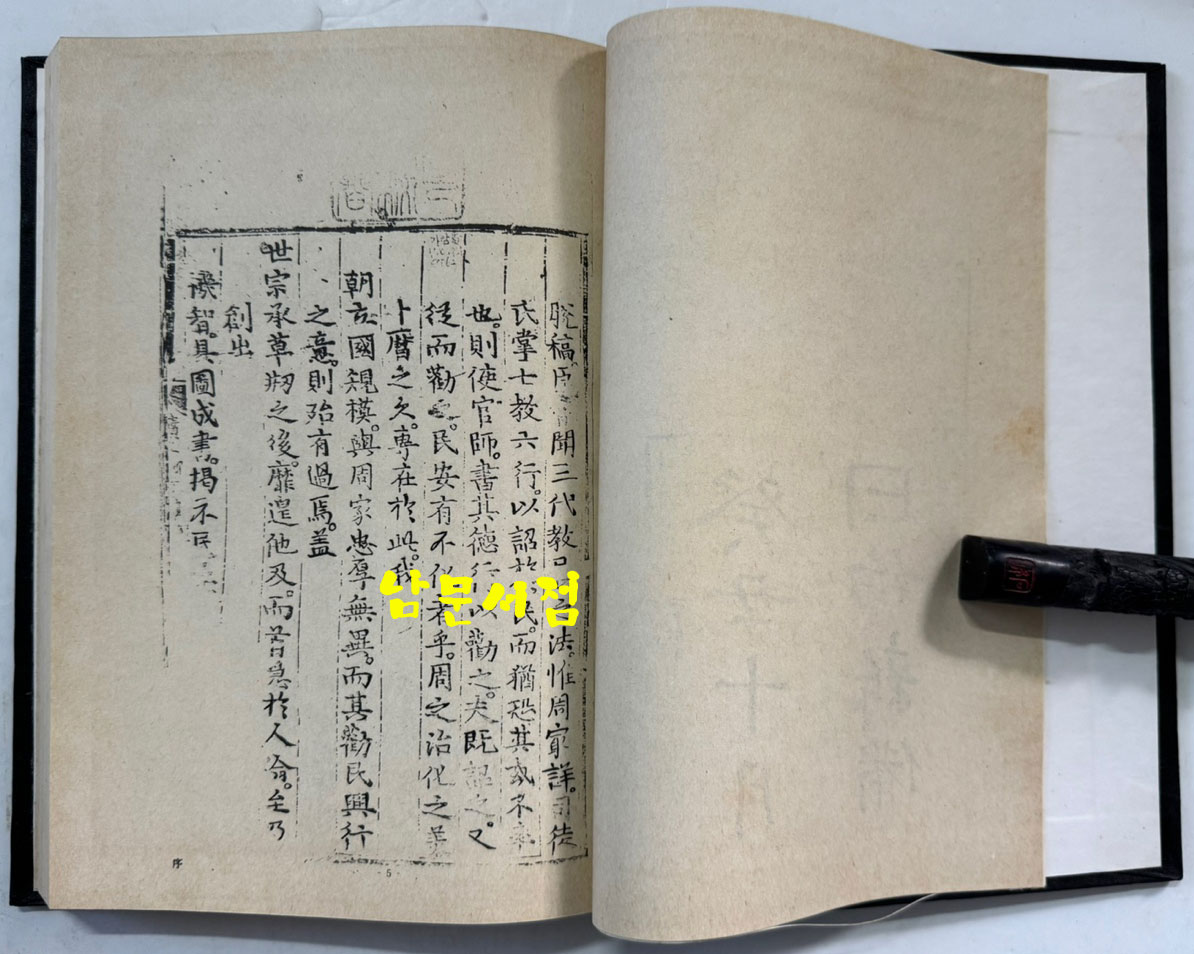 脫稿。臣
聞三代教
法。惟周家詳。司徒
氏掌七教六行。以詔
民。而猶恐其或不
也。則使官師。書其德行以勸之。夫既詔之。又
從而勸之。民安有不
者乎。周之治化之美
卜曆之久。專在於此。我
朝立國規模。與周家忠厚無異。而其勸民興行
之意。則殆有過焉。蓋
世宗承草刱之後。靡遑他及。而首急於人倫。至乃
創出
睿智。具圖成書。揭示民
序
5
남문서점